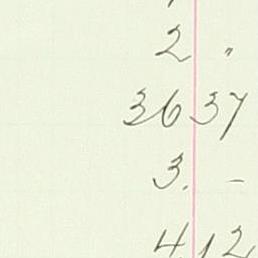 2 "
36 37
3. -
4 12